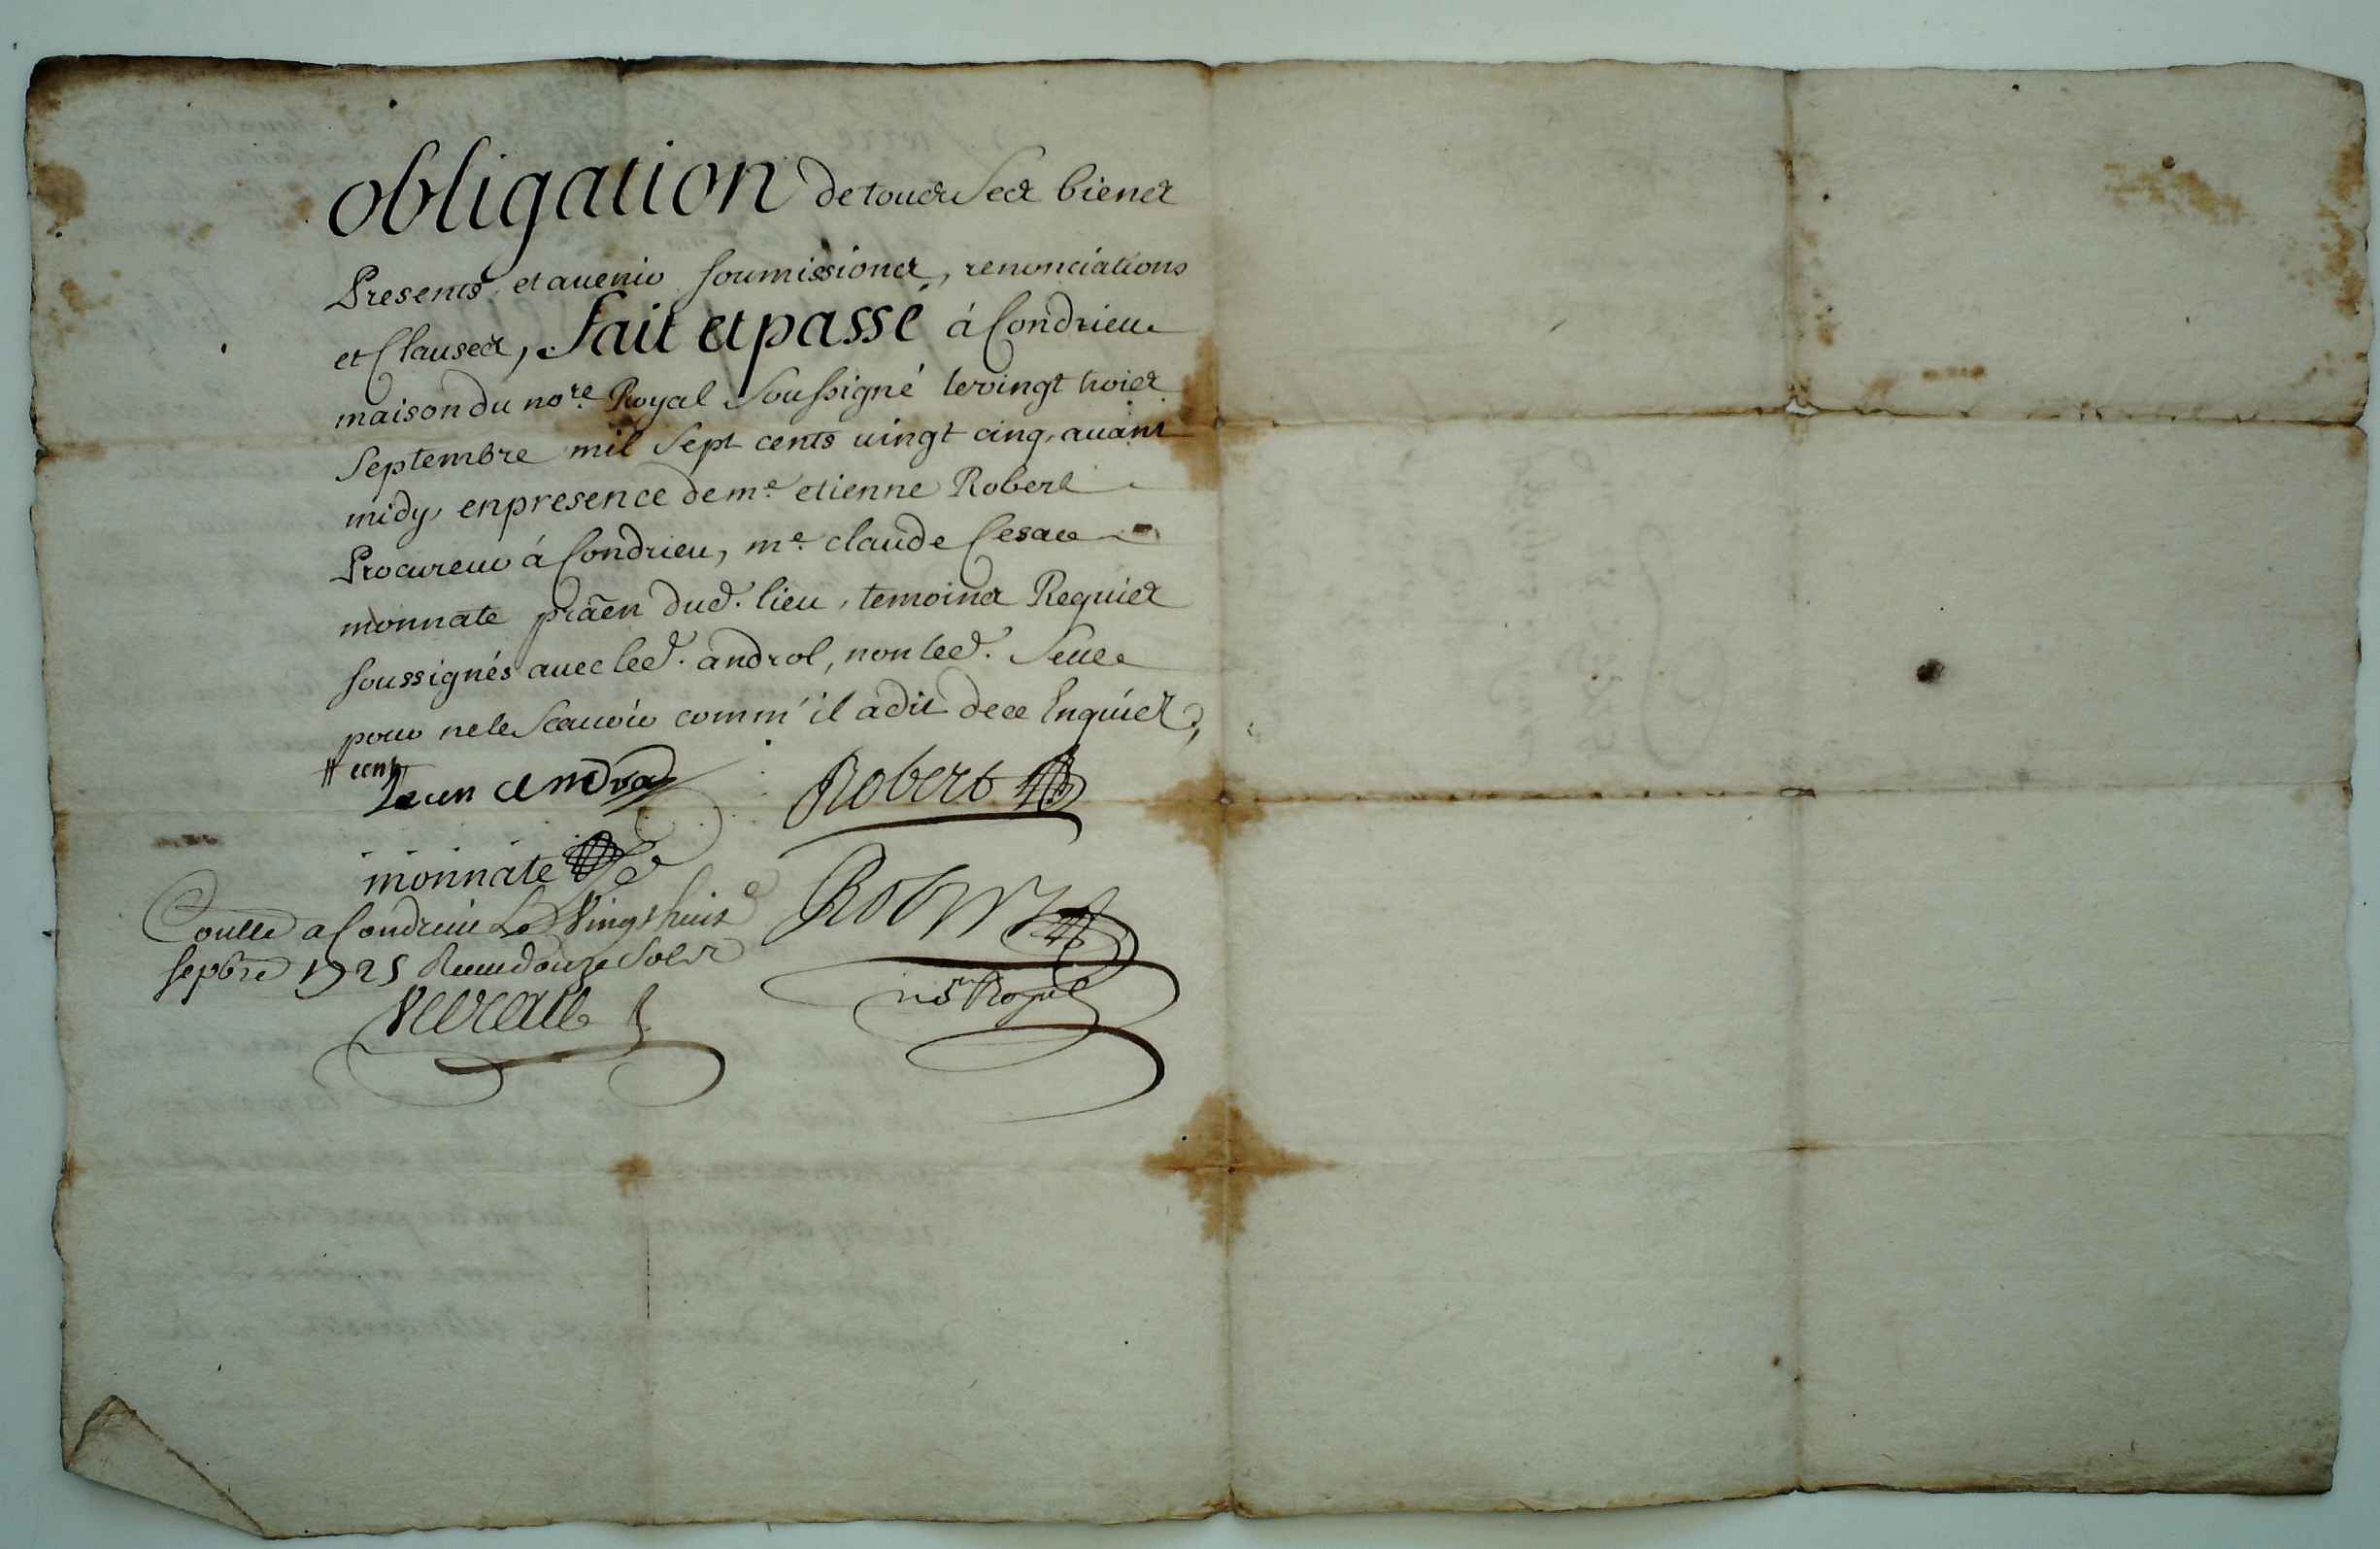 obligation de tous ses biens
Presents et avenir soumissions, renonciations
et Clauses, fait et passé à Condrieu
maison du no.re Royal Soussigné le vingt trois
Septembre mil Sept cents vingt cinq, avant
midy, en presence de m.e etienne Robert
Procureur à Condrieu, m.e claude Cesar
monnate prãen dud. lieu, temoins Requis
soussignés avec led. androl, non led. Seue
pour ne le Scauoir comm'il a dit de ce Enquis,
# cent
Jean andro
Robert
monnate
Robert
no.re Royal
Conllé a Condrieu Le Vingt huit
sepbre 1725 Receu douze Sols